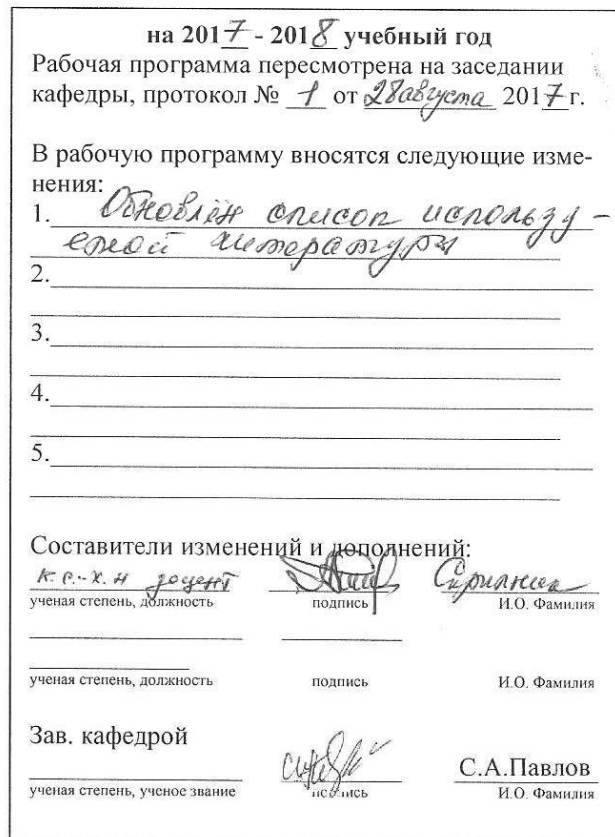 на 2017 - 2018 учебный год
Рабочая программа пересмотрена на заседании
кафедры, протокол № 1 от 28 августа 2017 г.
В рабочую программу вносятся следующие изме-
нения:
1. Обновлён список использу-
емой литературы
2.
3.
4.
5.
Составители изменений и дополнений:
к.с.-х.н доцент
ученая степень, должность подпись И.О. Фамилия
ученая степень, должность подпись И.О. Фамилия
Зав. кафедрой
С.А.Павлов
ученая степень, ученое звание подпись И.О. Фамилия